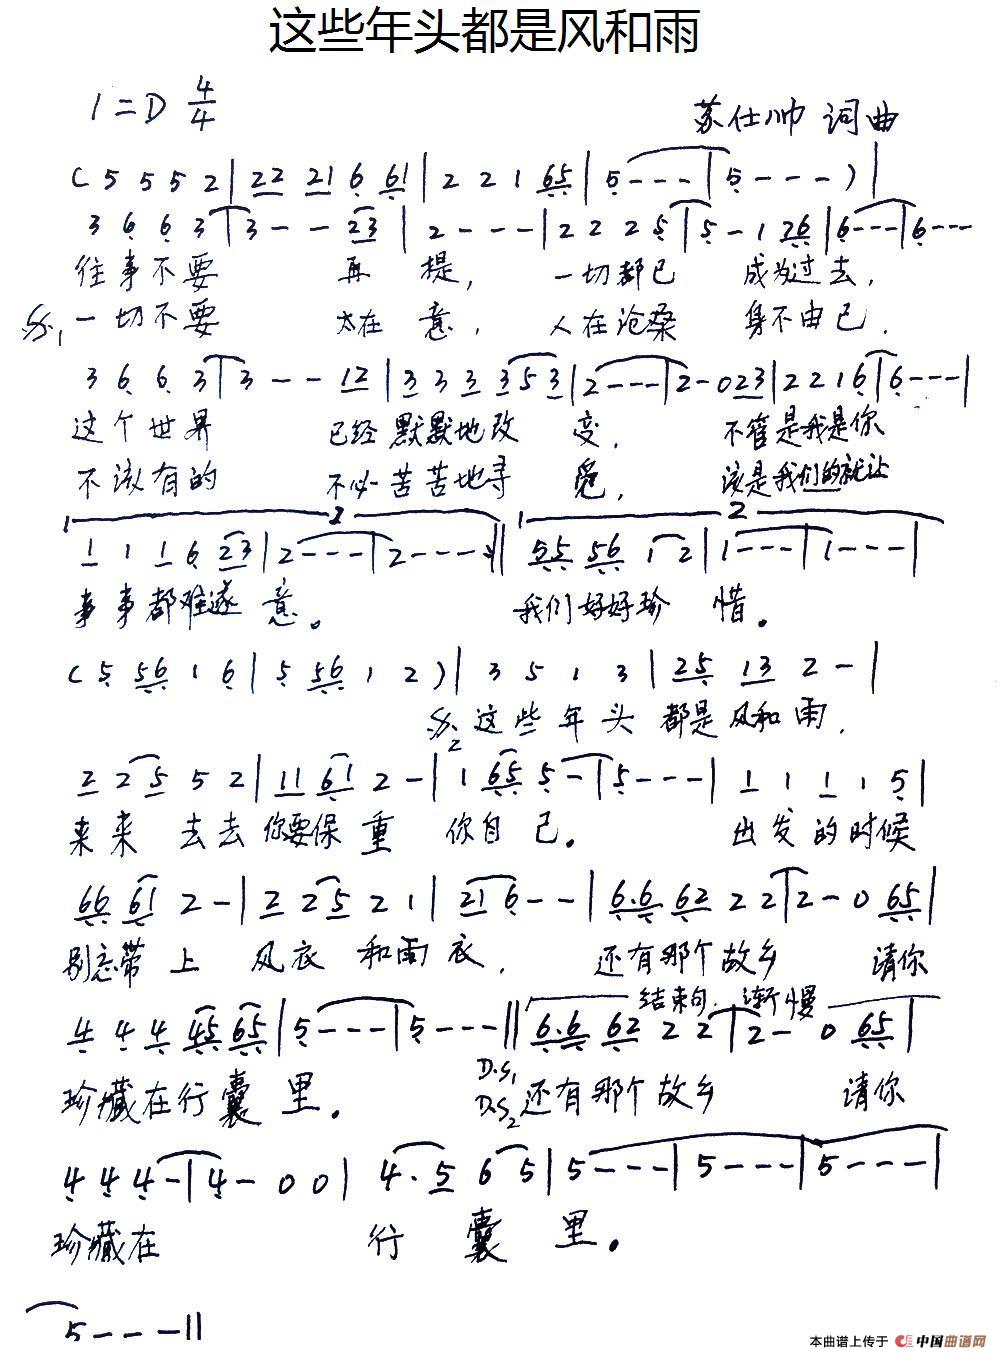 这些年头都是风和雨
1=D 4/4 苏仕帅 词曲
( 5 5 5 2 | 22 21 6 61 | 2 2 1 65 | 5 - - - | 5 - - - ) |
3 6 6 3 | 3 - - 23 | 2 - - - | 2 2 2 5 | 5 - 1 26 | 6 - - - | 6 - - -
往事不要 再 提, 一切都已 成为过去,
𝄋1 一切不要 太在 意, 人在沧桑 身不由已.
3 6 6 3 | 3 - - 12 | 3 3 3 3 5 3 | 2 - - - | 2 - 0 23 | 2 2 1 6 | 6 - - - |
这个世界 已经默默地改 变, 不管是我是你
不该有的 不必苦苦地寻 觅, 该是我们的就让
1 2 1 2
1 1 1 6 23 | 2 - - - | 2 - - - :|| 55 56 1 2 | 1 - - - | 1 - - - |
事事都难遂 意。 我们好好珍 惜。
( 5 56 1 6 | 5 56 1 2 ) | 3 5 1 3 | 25 13 2 - |
𝄋2 这些年头 都是风和雨,
2 2 5 5 2 | 11 61 2 - | 1 65 5 - | 5 - - - | 1 1 1 1 5 |
来来 去去你要保 重 你自己。 出发的时候
66 61 2 - | 2 2 5 2 1 | 21 6 - - | 6.6 62 2 2 | 2 - 0 65 |
别忘带 上 风衣 和雨衣, 还有那个故乡 请你
结束句.渐慢
4 4 4 45 65 | 5 - - - | 5 - - - || 6.6 62 2 2 | 2 - 0 65 |
珍藏在行囊 里。 D.S1 D.S2 还有那个故乡 请你
4 4 4 - | 4 - 0 0 | 4 . 5 6 5 | 5 - - - | 5 - - - | 5 - - - |
珍藏在 行 囊 里。
5 - - - ||
本曲谱上传于 中国曲谱网